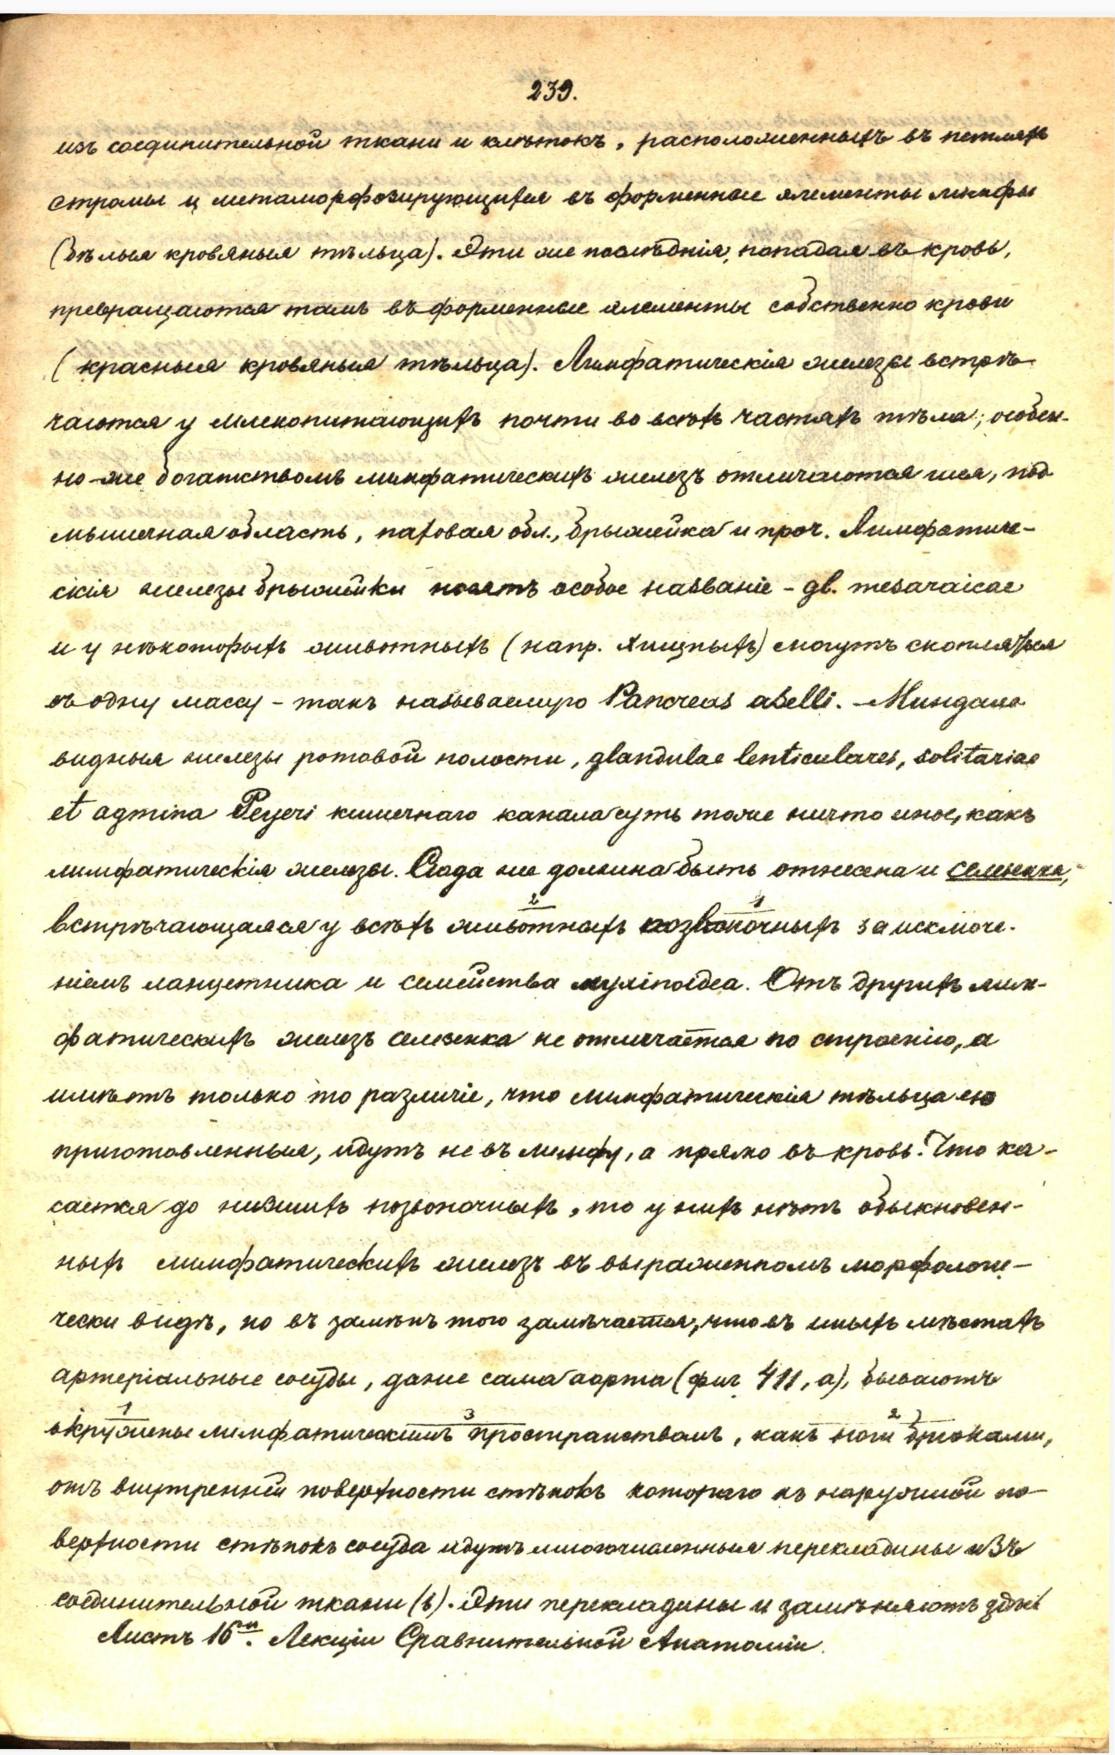 239.
изъ соединительной ткани и клѣтокъ, расположенныхъ въ петляхъ
стромы и метаморфозирующихся въ форменные элементы лимфы
(бѣлыя кровяныя тѣльца). Эти же послѣднія, попадая въ кровь,
превращаются тамъ въ форменные элементы собственно крови
(красныя кровяныя тѣльца). Лимфатическія железы встрѣ-
чаются у млекопитающихъ почти во всѣхъ частяхъ тѣла; особен-
но-же богатствомъ лимфатическихъ железъ отличаются шея, под
мышечная область, паховая обл., брыжейка и проч. Лимфатиче-
скія железы брыжейки носятъ особое названіе - gl. mesaraicae
и у нѣкоторыхъ животныхъ (напр. хищныхъ) могутъ скопляться
въ одну массу - такъ называемую Pancreas aselli. - Миндале
видныя железы ротовой полости, glandulae lenticulares, solitariae
et agmina Peyeri кишечнаго канала суть тоже ничто иное, какъ
лимфатическія железы. Сюда же должна быть отнесена и селезенка,
встрѣчающаяся у всѣхъ животныхъ 2 позвоночныхъ 1 за исключе-
ніемъ ланцетника и семейства myxinoidea. Отъ другихъ лим-
фатическихъ железъ селезенка не отличается по строенію, а
имѣетъ только то различіе, что лимфатическія тѣльца ею
приготовленныя, идутъ не въ лимфу, а прямо въ кровь. Что ка-
сается до низшихъ позвоночныхъ, то у нихъ нѣтъ обыкновен-
ныхъ лимфатическихъ железъ въ выраженномъ морфологи-
чески видѣ, но въ замѣнъ того замѣчается, что въ иныхъ мѣстахъ
артеріальные сосуды, даже сама аорта (фиг. 411, a), бываютъ
окружены 1 лимфатическимъ пространствомъ 3, какъ ноги брюками 2,
отъ внутренней поверхности стѣнокъ котораго къ наружной по-
верхности стѣнокъ сосуда идутъ многочисленныя перекладины изъ
соединительной ткани (b). Эти перекладины и замѣняютъ здѣсь
Листъ 16й. Лекціи Сравнительной Анатоміи.